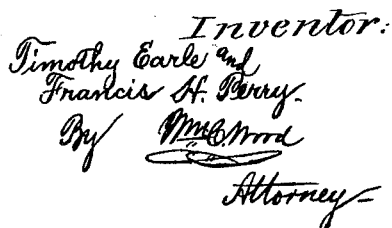 Inventor:
Timothy Earle and
Francis H. Perry.
By Wm C. Wood
Attorney